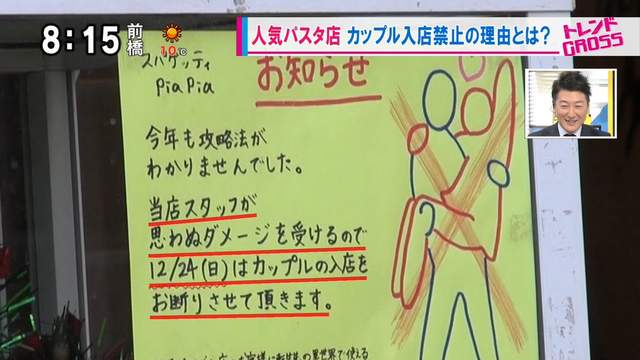 8:15
前橋
10℃
人気パスタ店 カップル入店禁止の理由とは?
トレンド
GROSS
スパゲッティ
PiaPia
お知らせ
今年も攻略法が
わかりませんでした。
当店スタッフが
思わぬダメージを受けるので
12/24(日)はカップルの入店を
お断りさせて頂きます。
の異世界で使える